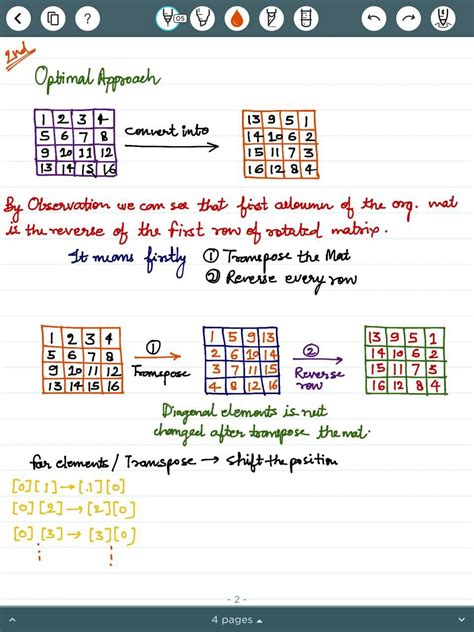 ?
OS
2nd
Optimal Approach
1 2 3 4
5 6 7 8
9 10 11 12
13 14 15 16
convert into
13 9 5 1
14 10 6 2
15 11 7 3
16 12 8 4
By Observation we can see that first coloumn of the org. mat
is the reverse of the first row of rotated matrix.
It means firstly ① Transpose the Mat
② Reverse every row
1 2 3 4
5 6 7 8
9 10 11 12
13 14 15 16
①
Transpose
1 5 9 13
2 6 10 14
3 7 11 15
4 8 12 16
②
Reverse
row
13 9 5 1
14 10 6 2
15 11 7 3
16 12 8 4
Diagonal elements is not
changed after transpose the mat.
for elements / Transpose → shift the position
[0][1] → [1][0]
[0][2] → [2][0]
[0][3] → [3][0]
- 2 -
4 pages